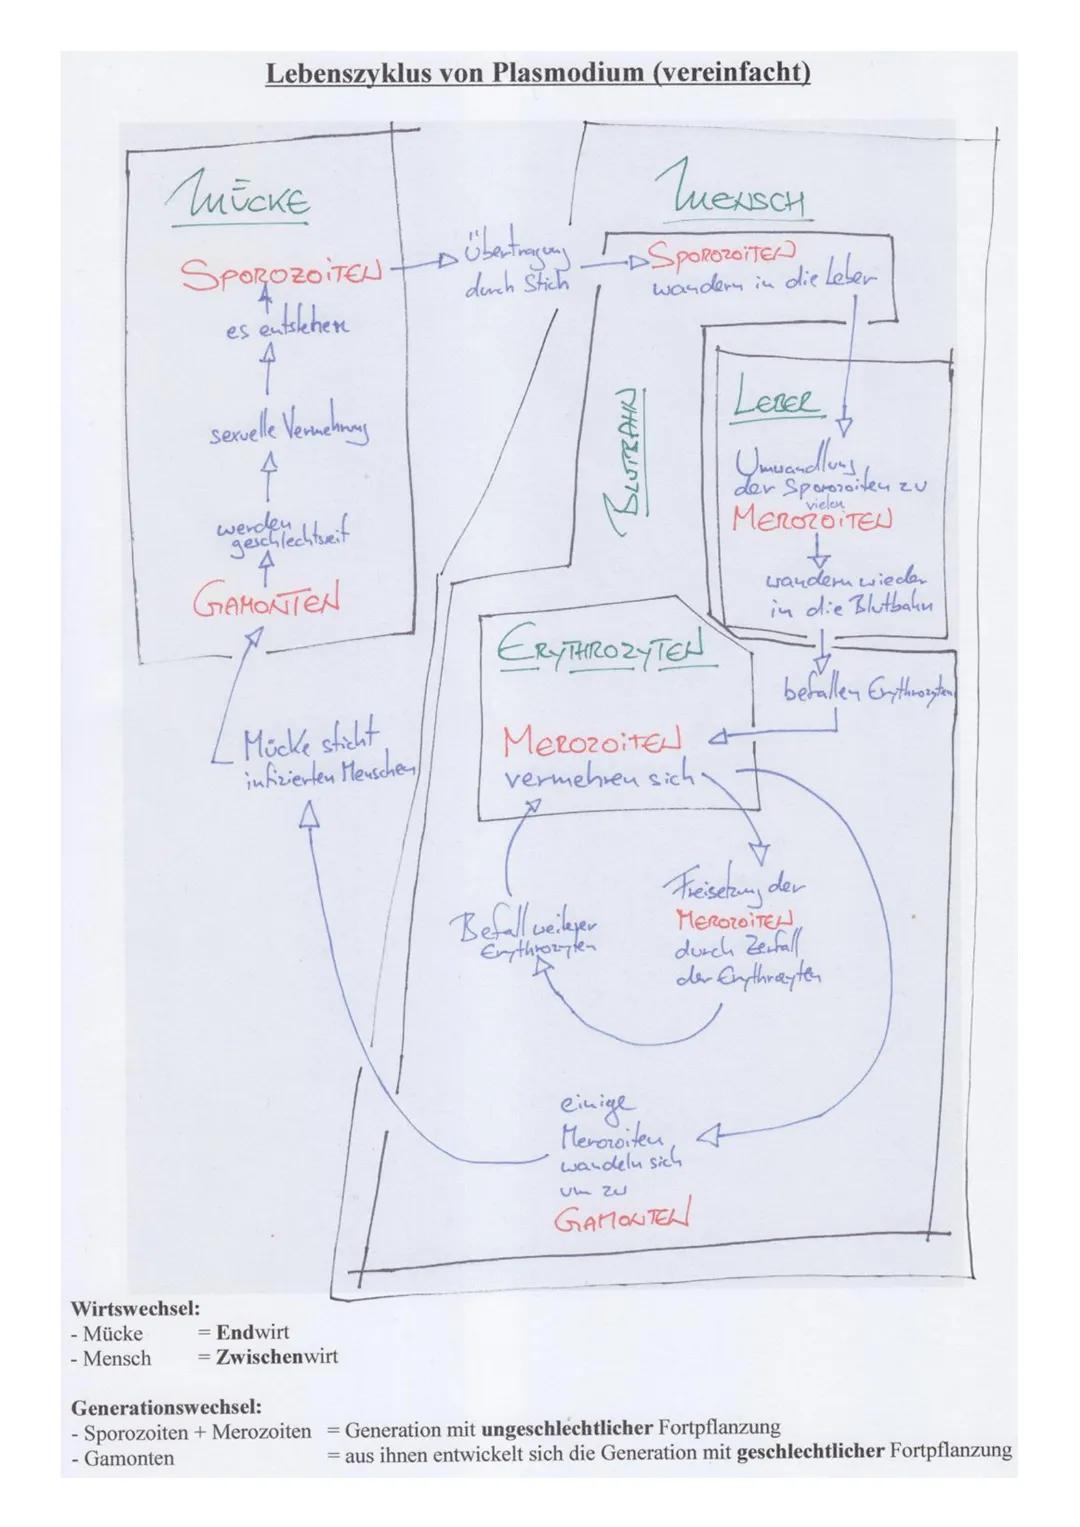 Lebenszyklus von Plasmodium (vereinfacht)
MÜCKE
SPOROZOITEN
es entstehen
sexuelle Vermehrung
werden
geschlechtsreif
GAMONTEN
Mücke sticht
infizierten Menschen
Übertragung
durch Stich
MENSCH
SPOROZOITEN
wandern in die Leber
BLUTBAHN
LEBER
Umwandlung
der Sporozoiten zu
vielen
MEROZOITEN
wandern wieder
in die Blutbahn
befallen Erythrozyten
ERYTHROZYTEN
MEROZOITEN
vermehren sich
Freisetzung der
MEROZOITEN
durch Zerfall
der Erythrozyten
Befall weiterer
Erythrozyten
einige
Merozoiten
wandeln sich
um zu
GAMONTEN
Wirtswechsel:
- Mücke = Endwirt
- Mensch = Zwischenwirt
Generationswechsel:
- Sporozoiten + Merozoiten = Generation mit ungeschlechtlicher Fortpflanzung
- Gamonten = aus ihnen entwickelt sich die Generation mit geschlechtlicher Fortpflanzung